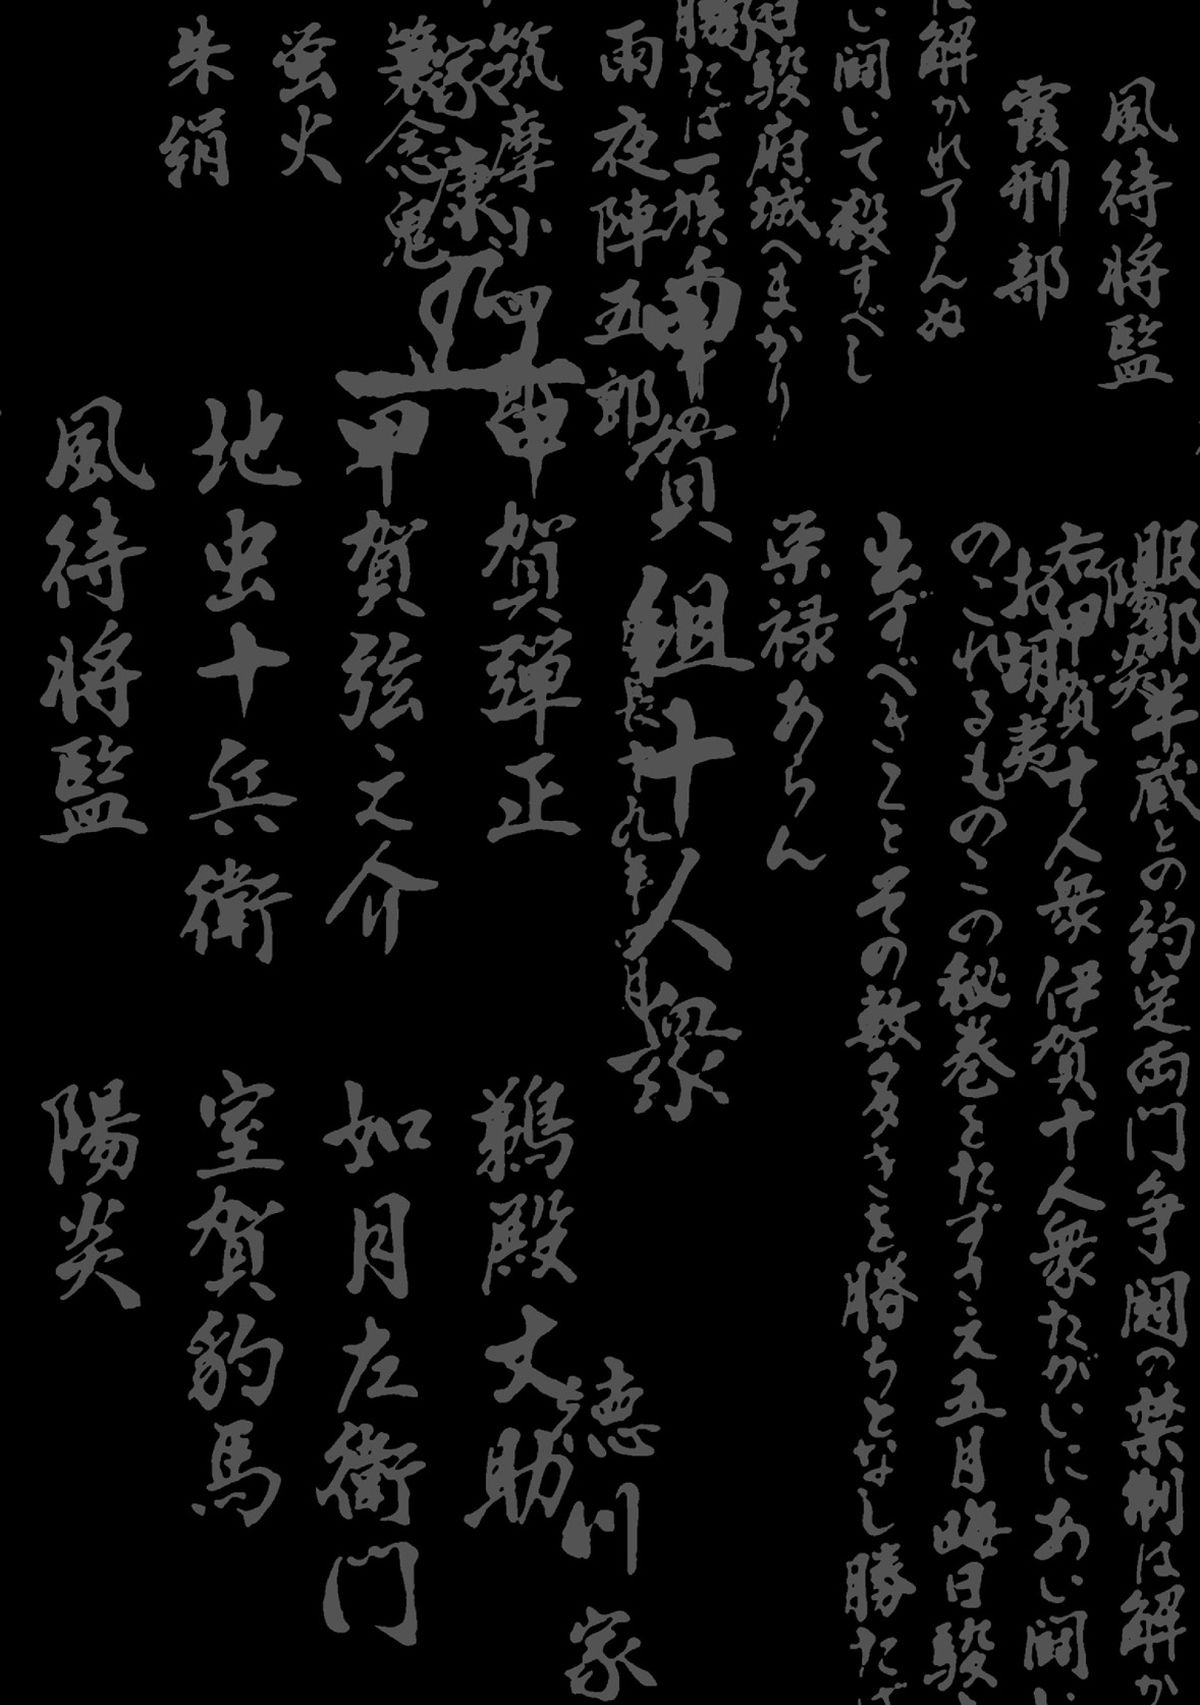 風待将監
霞刑部
に解かれ了んぬ
い闘いて殺すべし
駿府城へまかり
勝たば一族
雨夜陣五郎
筑摩小
簑念鬼
家康
蛍火
朱絹
服部半蔵との約定両門争闘の禁制は解か
陽炎
右甲賀十人衆伊賀十人衆たがいにあい闘い
お胡夷
のこれるものこの秘巻をたずさえ五月晦日駿
出ずべきことその数多きを勝ちとなし勝たば
栄禄あらん
甲賀組十人衆
慶長十九年四月
徳川家
甲賀弾正
甲賀弦之介
地虫十兵衛
風待将監
鵜殿丈助
如月左衛門
室賀豹馬
陽炎